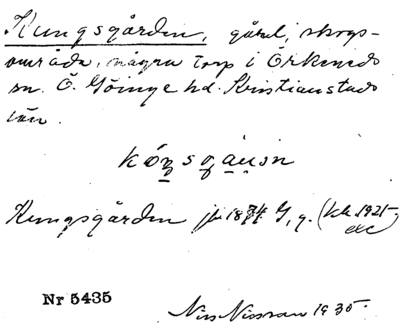 Kungsgården, gård, skogs-
område, några torp i Örkeneds
sn. Ö. Göinge hd. Kristianstads
län.
Kungsgården 1874 G, q. (kk 1925
Nr 5435
Nils Nilsson 1935.